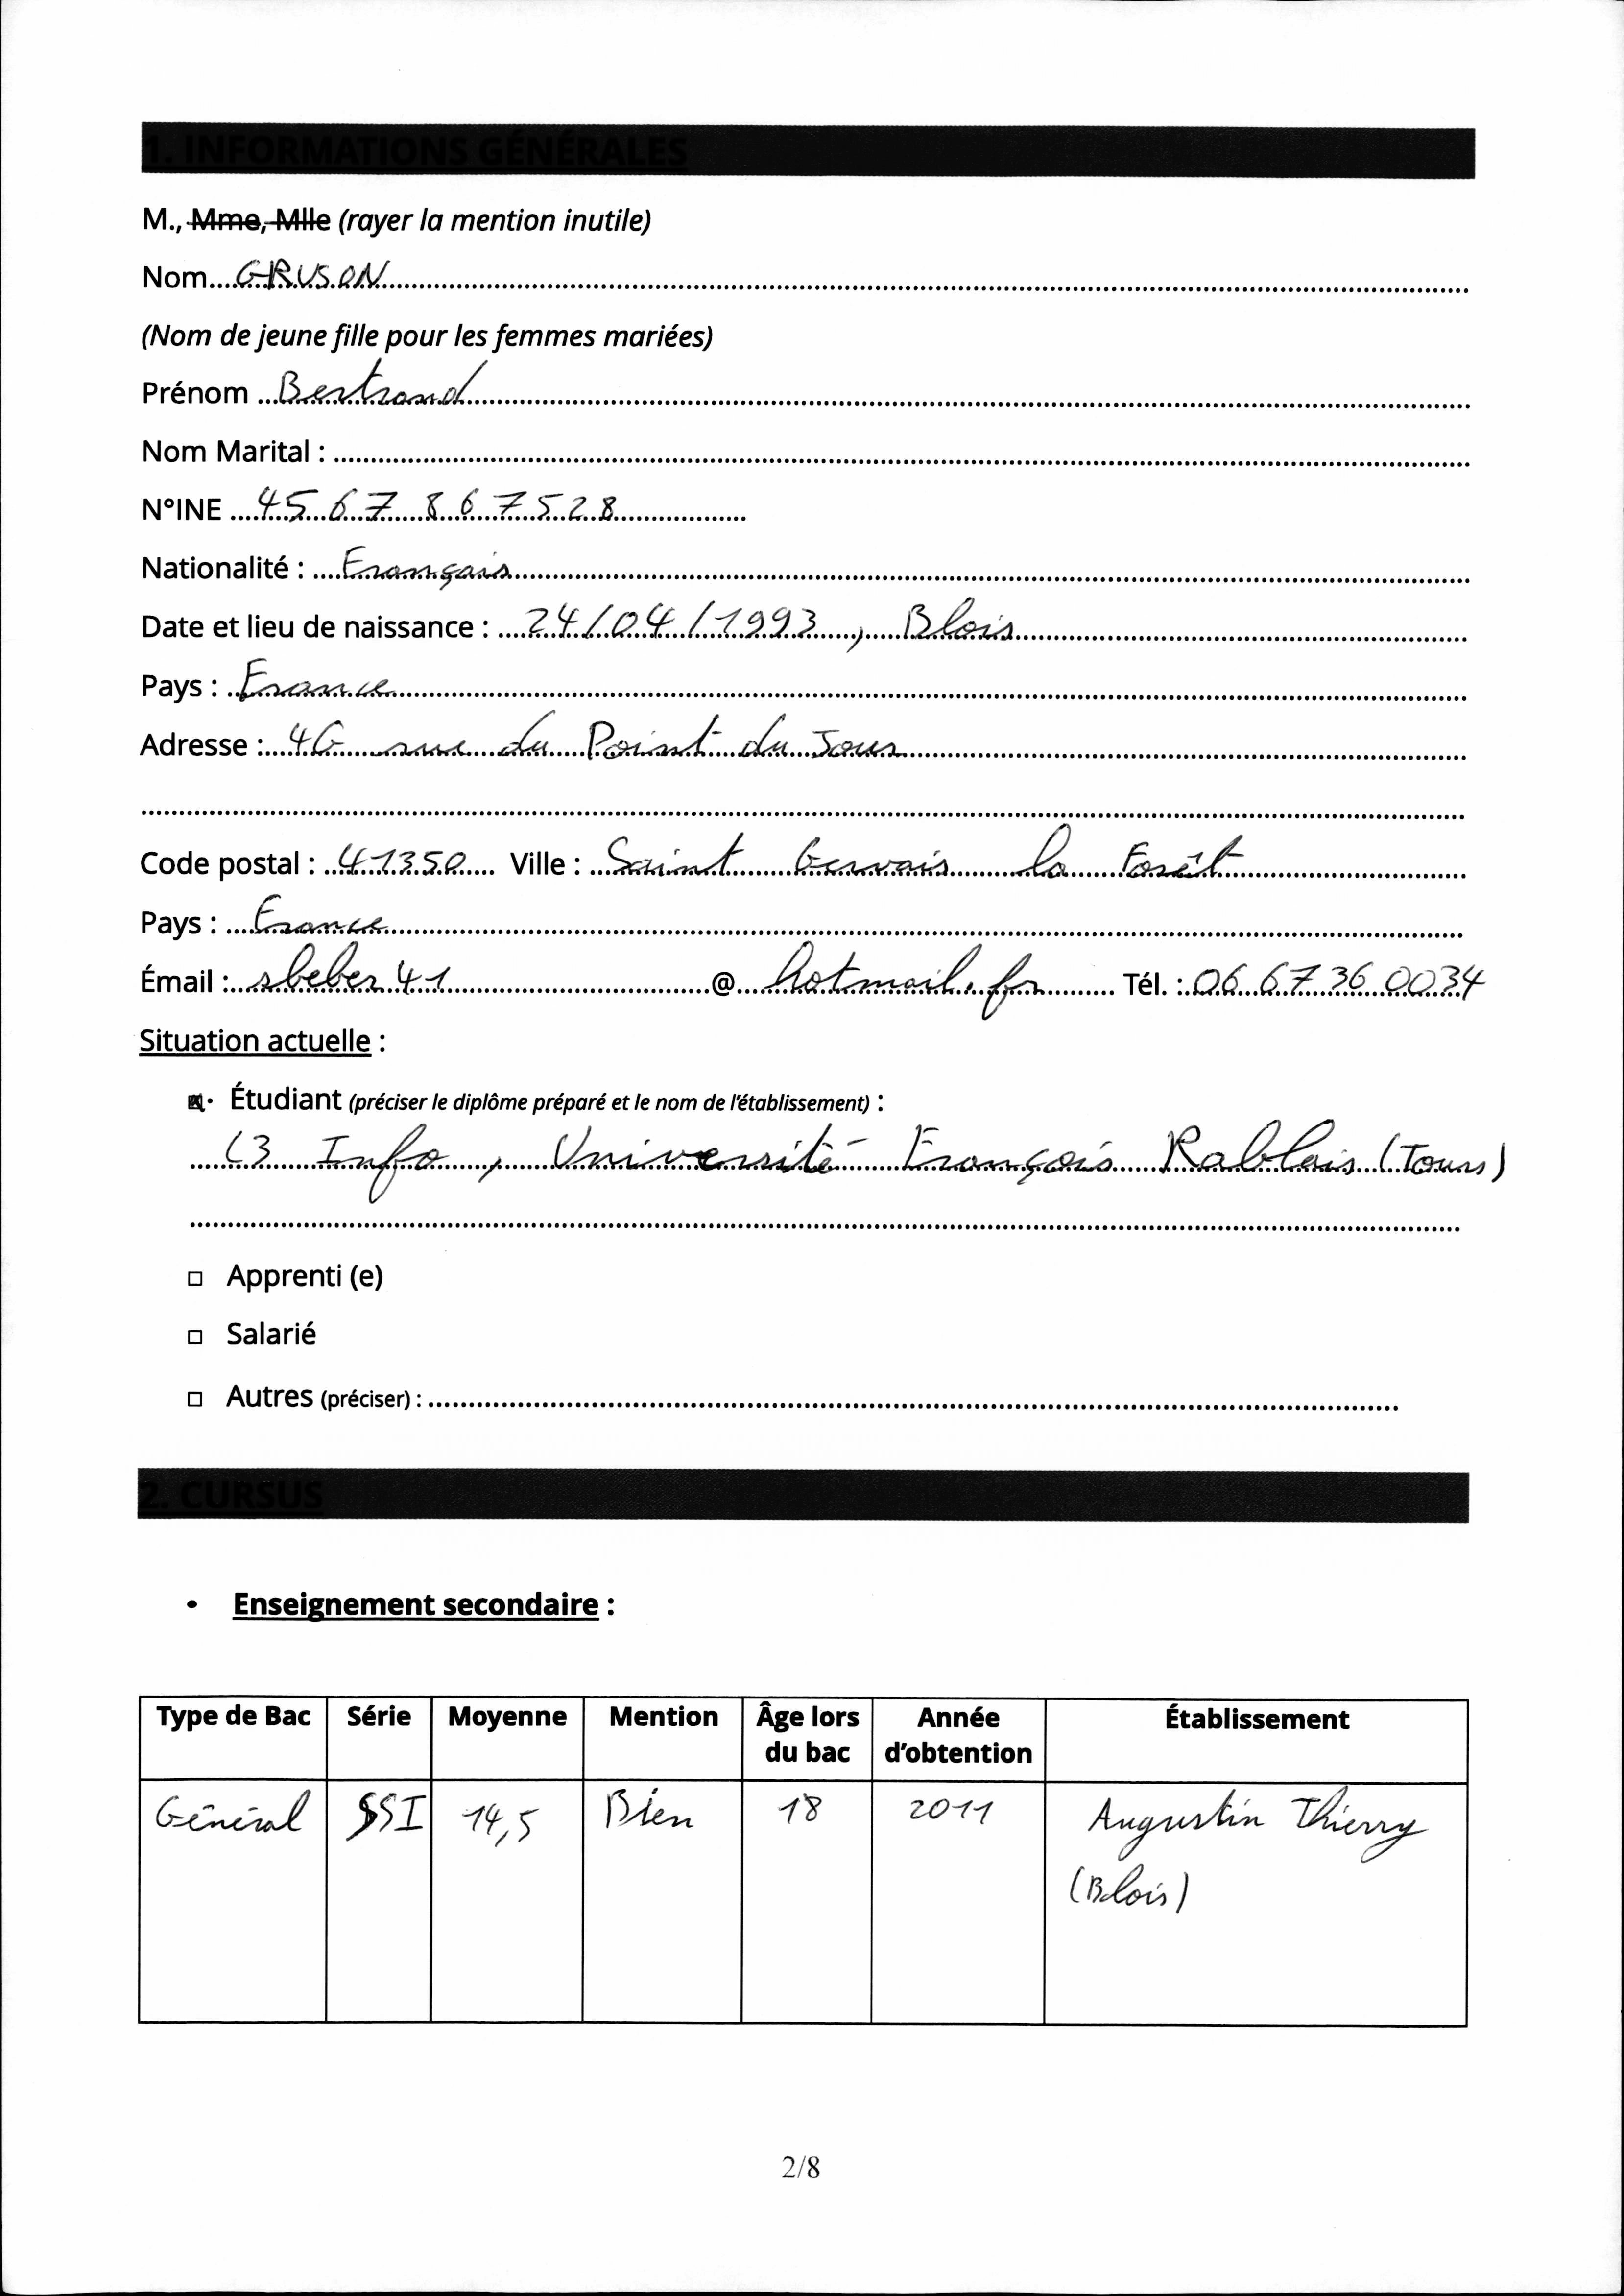 1. INFORMATIONS GÉNÉRALES
M., Mme, Mlle (rayer la mention inutile)
Nom....GRUSON....
(Nom de jeune fille pour les femmes mariées)
Prénom ...Bertrand....
Nom Marital : ....
N°INE ....4567 867528....
Nationalité : ....Français....
Date et lieu de naissance : ....24/04/1993, Blois....
Pays : ...France....
Adresse :....4G rue du Point du Jour....
Code postal : ...41350.... Ville : ...Saint Gervais la Forêt....
Pays : ....France....
Émail :...sbeber41....@....hotmail.fr.... Tél. :.06 67 36 0034
Situation actuelle :
Étudiant (préciser le diplôme préparé et le nom de l'établissement) :
L3 Info, Université François Rablais (Tours)
□ Apprenti (e)
□ Salarié
□ Autres (préciser) : ....
2. CURSUS
• Enseignement secondaire :
Type de Bac Série Moyenne Mention Âge lors du bac Année d'obtention Établissement
Général SSI 14,5 Bien 18 2011 Augustin Thierry
(Blois)
2/8